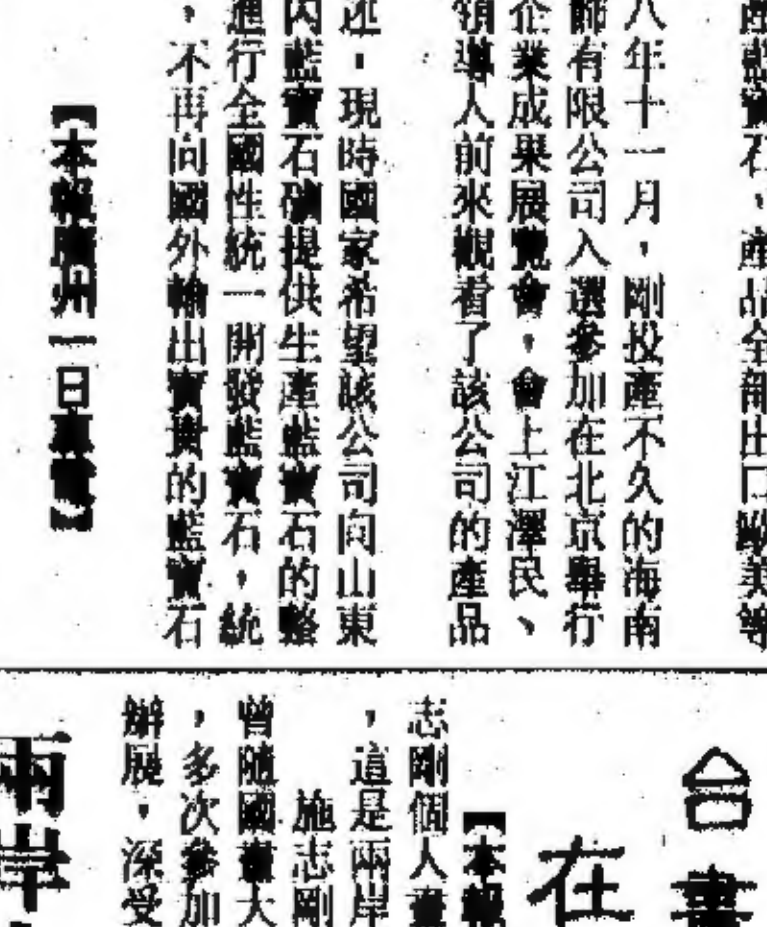 產藍寶石，產品全部出口歐美等
八年十一月，剛投產不久的海南
飾有限公司入選參加在北京舉行
企業成果展覽會，會上江澤民、
領導人前來觀看了該公司的產品
述。現時國家希望該公司向山東
內藍寶石礦提供生產藍寶石的
進行全國性統一開發藍寶石，統
，不再向國外輸出寶貴的藍寶石
【本報廣州一日專電】
台畫
在
【本報
志剛個人畫
，這是兩岸
施志剛
曾隨國畫大
，多次參加
辦展，深受
兩岸